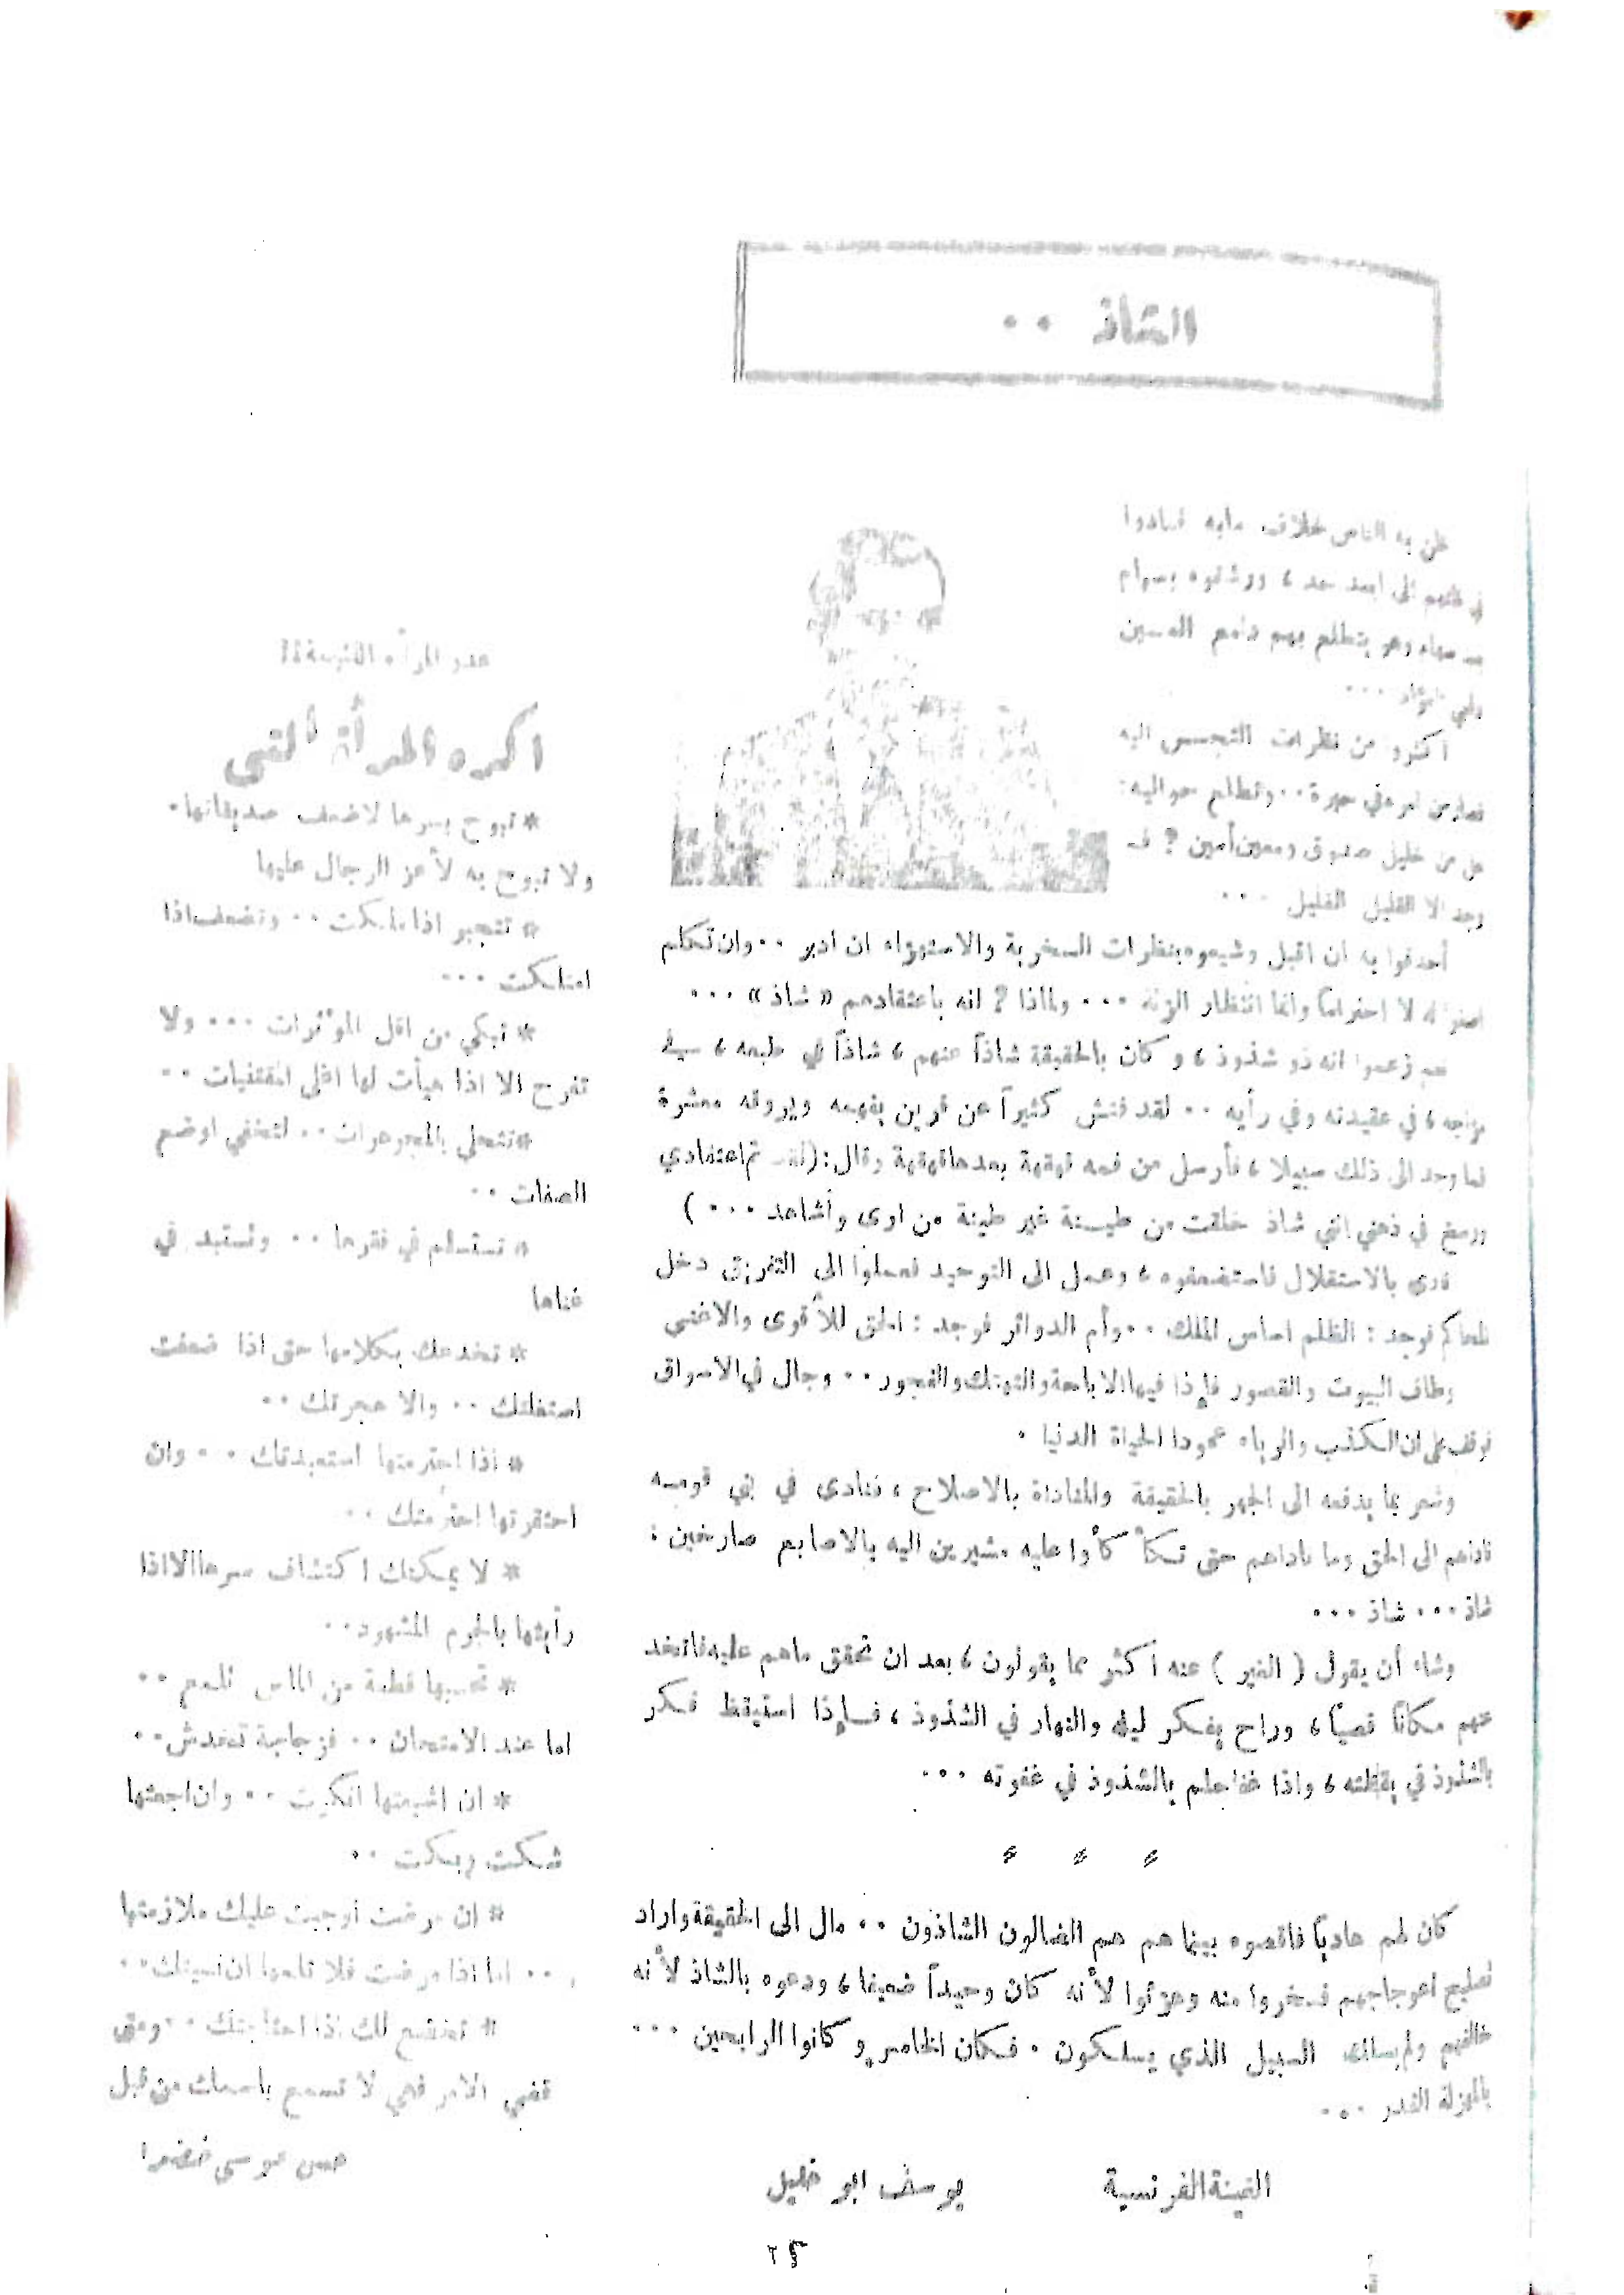 الشاذ ٠٠
ظن به الناس خلاف مابه فتمادوا
في ظنهم الى ابعد حد ، ورشقوه بسهام
وهو يتطلع بهم دامع العينين
دامي الفؤاد ٠٠٠
اكثروا من نظرات التجسس اليه
فصار من امره في حيرة ٠٠ وتطلع حواليه :
هل من خليل صدوق ومعين أمين ؟ فـ
وجد الا القليل القليل ٠٠٠
أحدقوا به ان اقبل وشيعوه بنظرات السخرية والاستهزاء ان ادبر ٠٠ وان تكلم
اصغوا له لا احتراماً وانما انتظار الزلة ٠٠٠ ولماذا ؟ انه باعتقادهم « شاذ » ٠٠٠
هم زعموا انه ذو شذوذ ، وكان بالحقيقة شاذاً عنهم ، شاذاً في طبعه ، في
مزاجه ، في عقيدته وفي رأيه ٠٠ لقد فتش كثيراً عن قرين يفهمه ويروقه معشره
فما وجد الى ذلك سبيلا ، فأرسل من فمه قهقهة بعدها قهقهة وقال : ( لقد تم اعتقادي
ورسخ في ذهني انني شاذ خلقت من طيـنة غير طينة من ارى وأشاهد ٠٠٠ )
نادى بالاستقلال فاستضعفوه ، وعمل الى التوحيد فعملوا الى التفريق دخل
المحاكم فوجد : الظلم اساس الملك ٠٠ وأم الدوائر فوجد : الحق للأقوى والاغنى
وطاف البيوت والقصور فإذا فيها الاباحة والتهتك والفجور ٠٠ وجال في الاسواق
فوقف على ان الكذب والرياء عمودا الحياة الدنيا ٠
وشعر بما يدفعه الى الجهر بالحقيقة والمناداة بالاصلاح ، فنادى في بني قومـه
ناداهم الى الحق وما ناداهم حتى تـكأ كأوا عليه مشيرين اليه بالاصابع صارخين :
شاذ ٠٠٠ شاذ ٠٠٠
وشاء أن يقول ( الغير ) عنه اكثر مما يقولون ، بعد ان تحقق ماهم عليه فاتخذ
عنهم مكاناً قصيّاً ، وراح يفكر ليله والنهار في الشذوذ ، فـإذا استيقظ فـكر
بالشذوذ في يقظته ، واذا غفا حلم بالشذوذ في غفوته ٠٠٠
* * *
كان لهم هادياً فاقصوه بينما هم هم الضالون الشاذون ٠٠ مال الى الحقيقة واراد
تصليح اعوجاجهم فسخروا منه وهزئوا لأنه كان وحيداً ضعيفا ، ودعوه بالشاذ لأنه
خالفهم ولم يسلك السبيل الذي يسلكون ٠ فـكان الخاسر وكانوا الرابحين ٠٠٠
يالهزلة القدر ٠٠٠
الغينة الفرنسية يوسف ابو خليل
عدو المرأة
اكره المرأة التي
* تبوح بسرها لاضعف صديقاتها ٠
ولا تبوح به لأعز الرجال عليها
* تتجبر اذا ما ملكت ٠٠ وتضعف اذا
امتلكت ٠٠٠
* تبكي من اقل المؤثرات ٠٠٠ ولا
تفرح الا اذا هيأت لها اغلى المقتنيات ٠٠
* تتحلى بالمجوهرات ٠٠ لتخفي اوضع
الصفات ٠٠
* تستسلم في فقرها ٠٠ وتستبد في
غناها
* تخدعك بكلامها حتى اذا ضعفت
استغلتك ٠٠ والا هجرتك ٠٠
* اذا احترمتها استعبدتك ٠٠٠ وان
احتقرتها احترمتك ٠٠
* لا يمكنك اكتشاف سرها الا اذا
رأيتها بالجرم المشهود ٠٠
* تحسبها قطعة من الماس تلمع ٠٠
اما عند الامتحان ٠٠ فزجاجة تخدش ٠٠
* ان اشبعتها انكرت ٠٠ وان اجعتها
شكت وبكت ٠٠
* ان مرضت أوجبت عليك ملازمتها
٠٠ اما اذا مرضت فلا تلمها ان نسيتك ٠٠
* تخضع لك اذا احتاجتك ٠٠ ومتى
قضي الامر فهي لا تسمع باسمك من قبل
حسن موسى خضرا
٢٤